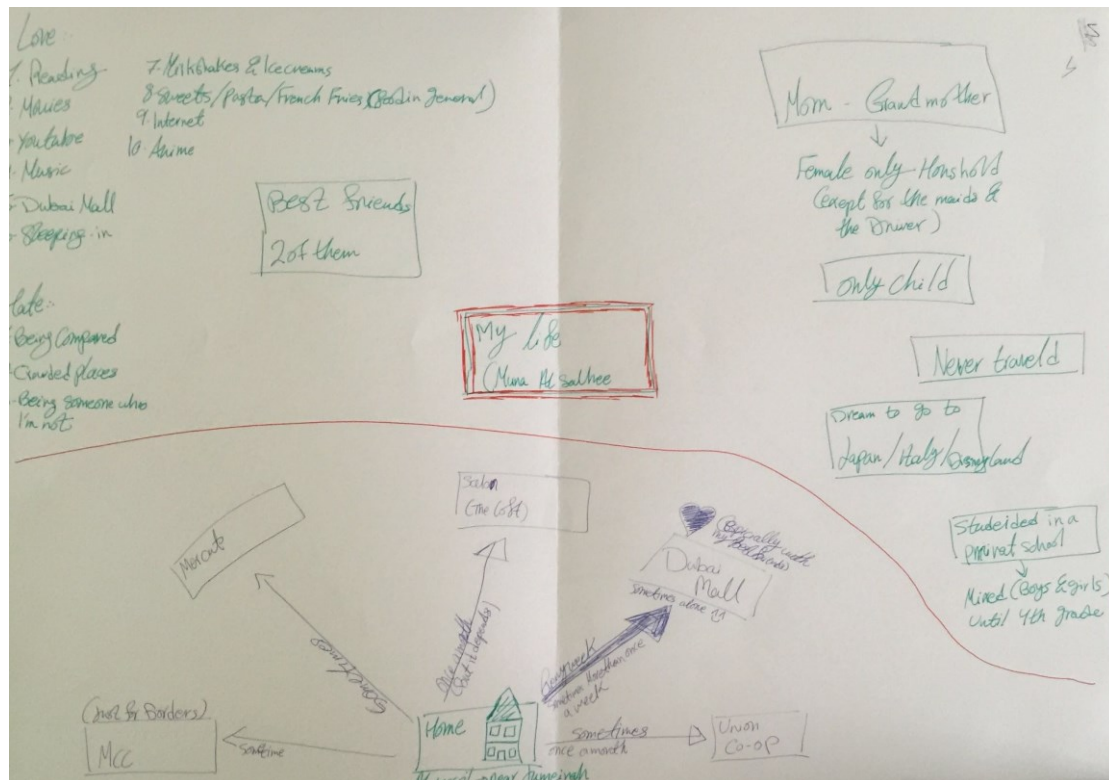 Love
1. Reading
Movies
Youtube
Music
Dubai Mall
Sleeping-in
7. Milkshakes & Icecreams
8 Sweets/Pasta/French Fries (food in general)
9. Internet
10 Anime
Hate:
Being Compared
Crowded places
Being someone who
I'm not
Best friends
2 of them
My life
(Muna Al
Mom - Grandmother
Female only
(except for the maids &
the Driver)
only child
Never traveld
Dream to go to
Japan/Italy/Disneyland
Studeided in a
school
Mixed (Boys & girls)
Until 4th grade
Mercato
sometimes
Salon
(The Loft)
once month
(but it depends)
(Especially with
my best friends)
Dubai
Mall
sometimes alone
Every week
sometimes more than once
a week
(just for Borders)
MCC
sometime
Home
near Jumeirah
sometimes
once a month
Union
Co-op